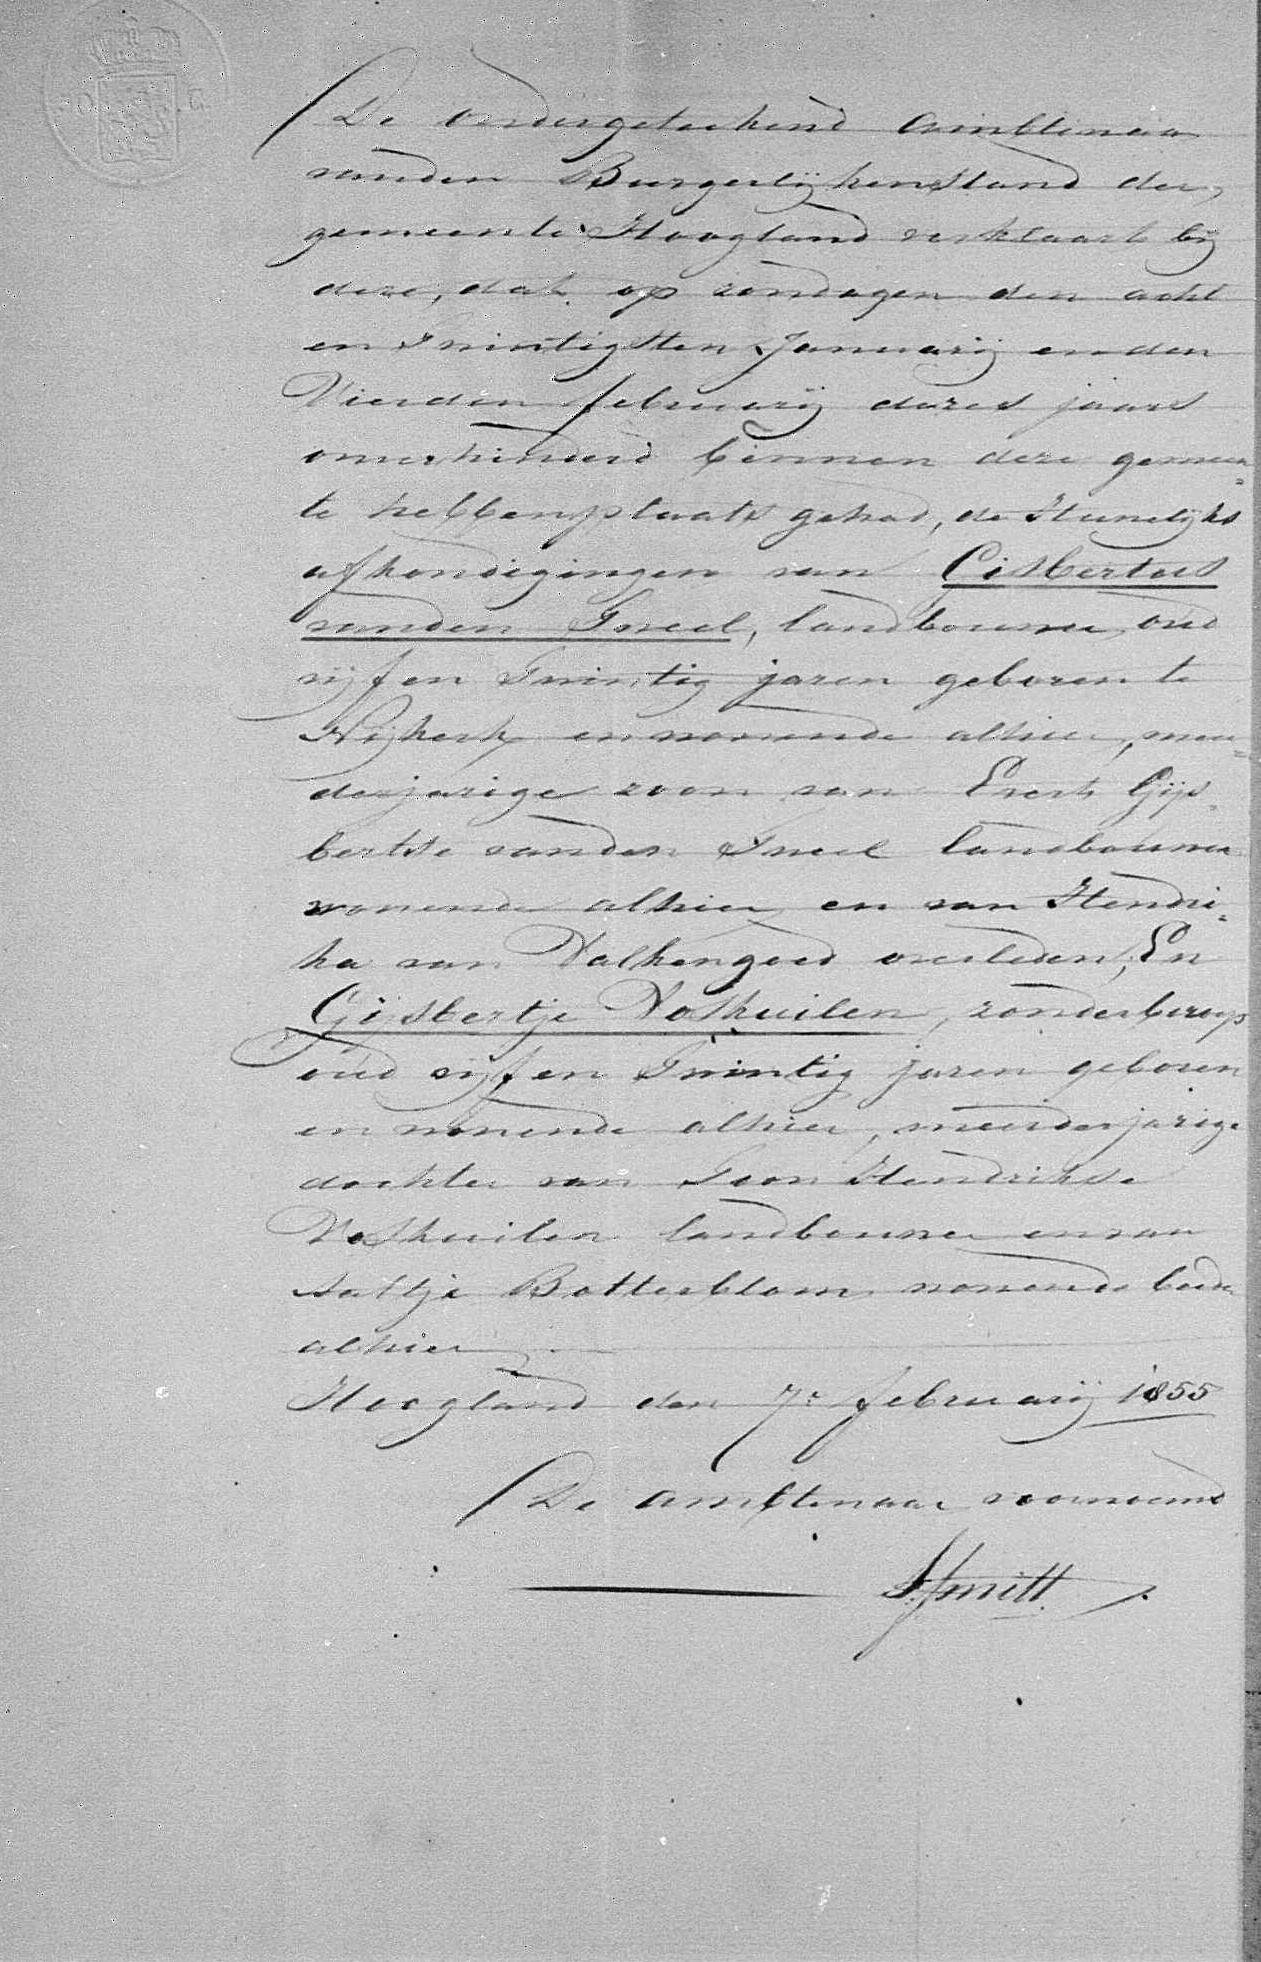 De ondergeteekend Ambtenaar
vanden Burgerlijkenstand der
gemeente Hoogland verklaart bij
deze, dat op zondagen den acht
en Twintigsten Januarij en den
Vierden februarij dezes jaars
onverhinderd binnen deze gemeen=
te hebben plaats gehad, de Huwelijks
afkondigingen van Gisbertus
vanden Tweel, landbouwer, oud
vijf en Twintig jaren geboren te
Nijkerk en wonende alhier, meer=
derjarige zoon van Evert Gijs=
bertse vanden Tweel landbouwer
wonende alhier en van Hendri=
ka van Valkengoed overleden, En
Gijsbertje Voskuilen, zonder beroep
oud vijf en Twintig jaren geboren
en wonende alhier, meerderjarige
dochter van Toon Hendrikse
Voskuilen landbouwer en van
Aaltje Botterblom wonende beide
alhier
Hoogland den 7e februarij 1855
De ambtenaar voornoemd
Smitt.